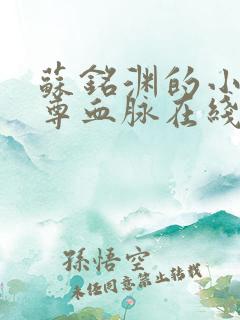 蘇銘渊的小
尊血脉在綫
孫悟空
未經同意禁止轉載